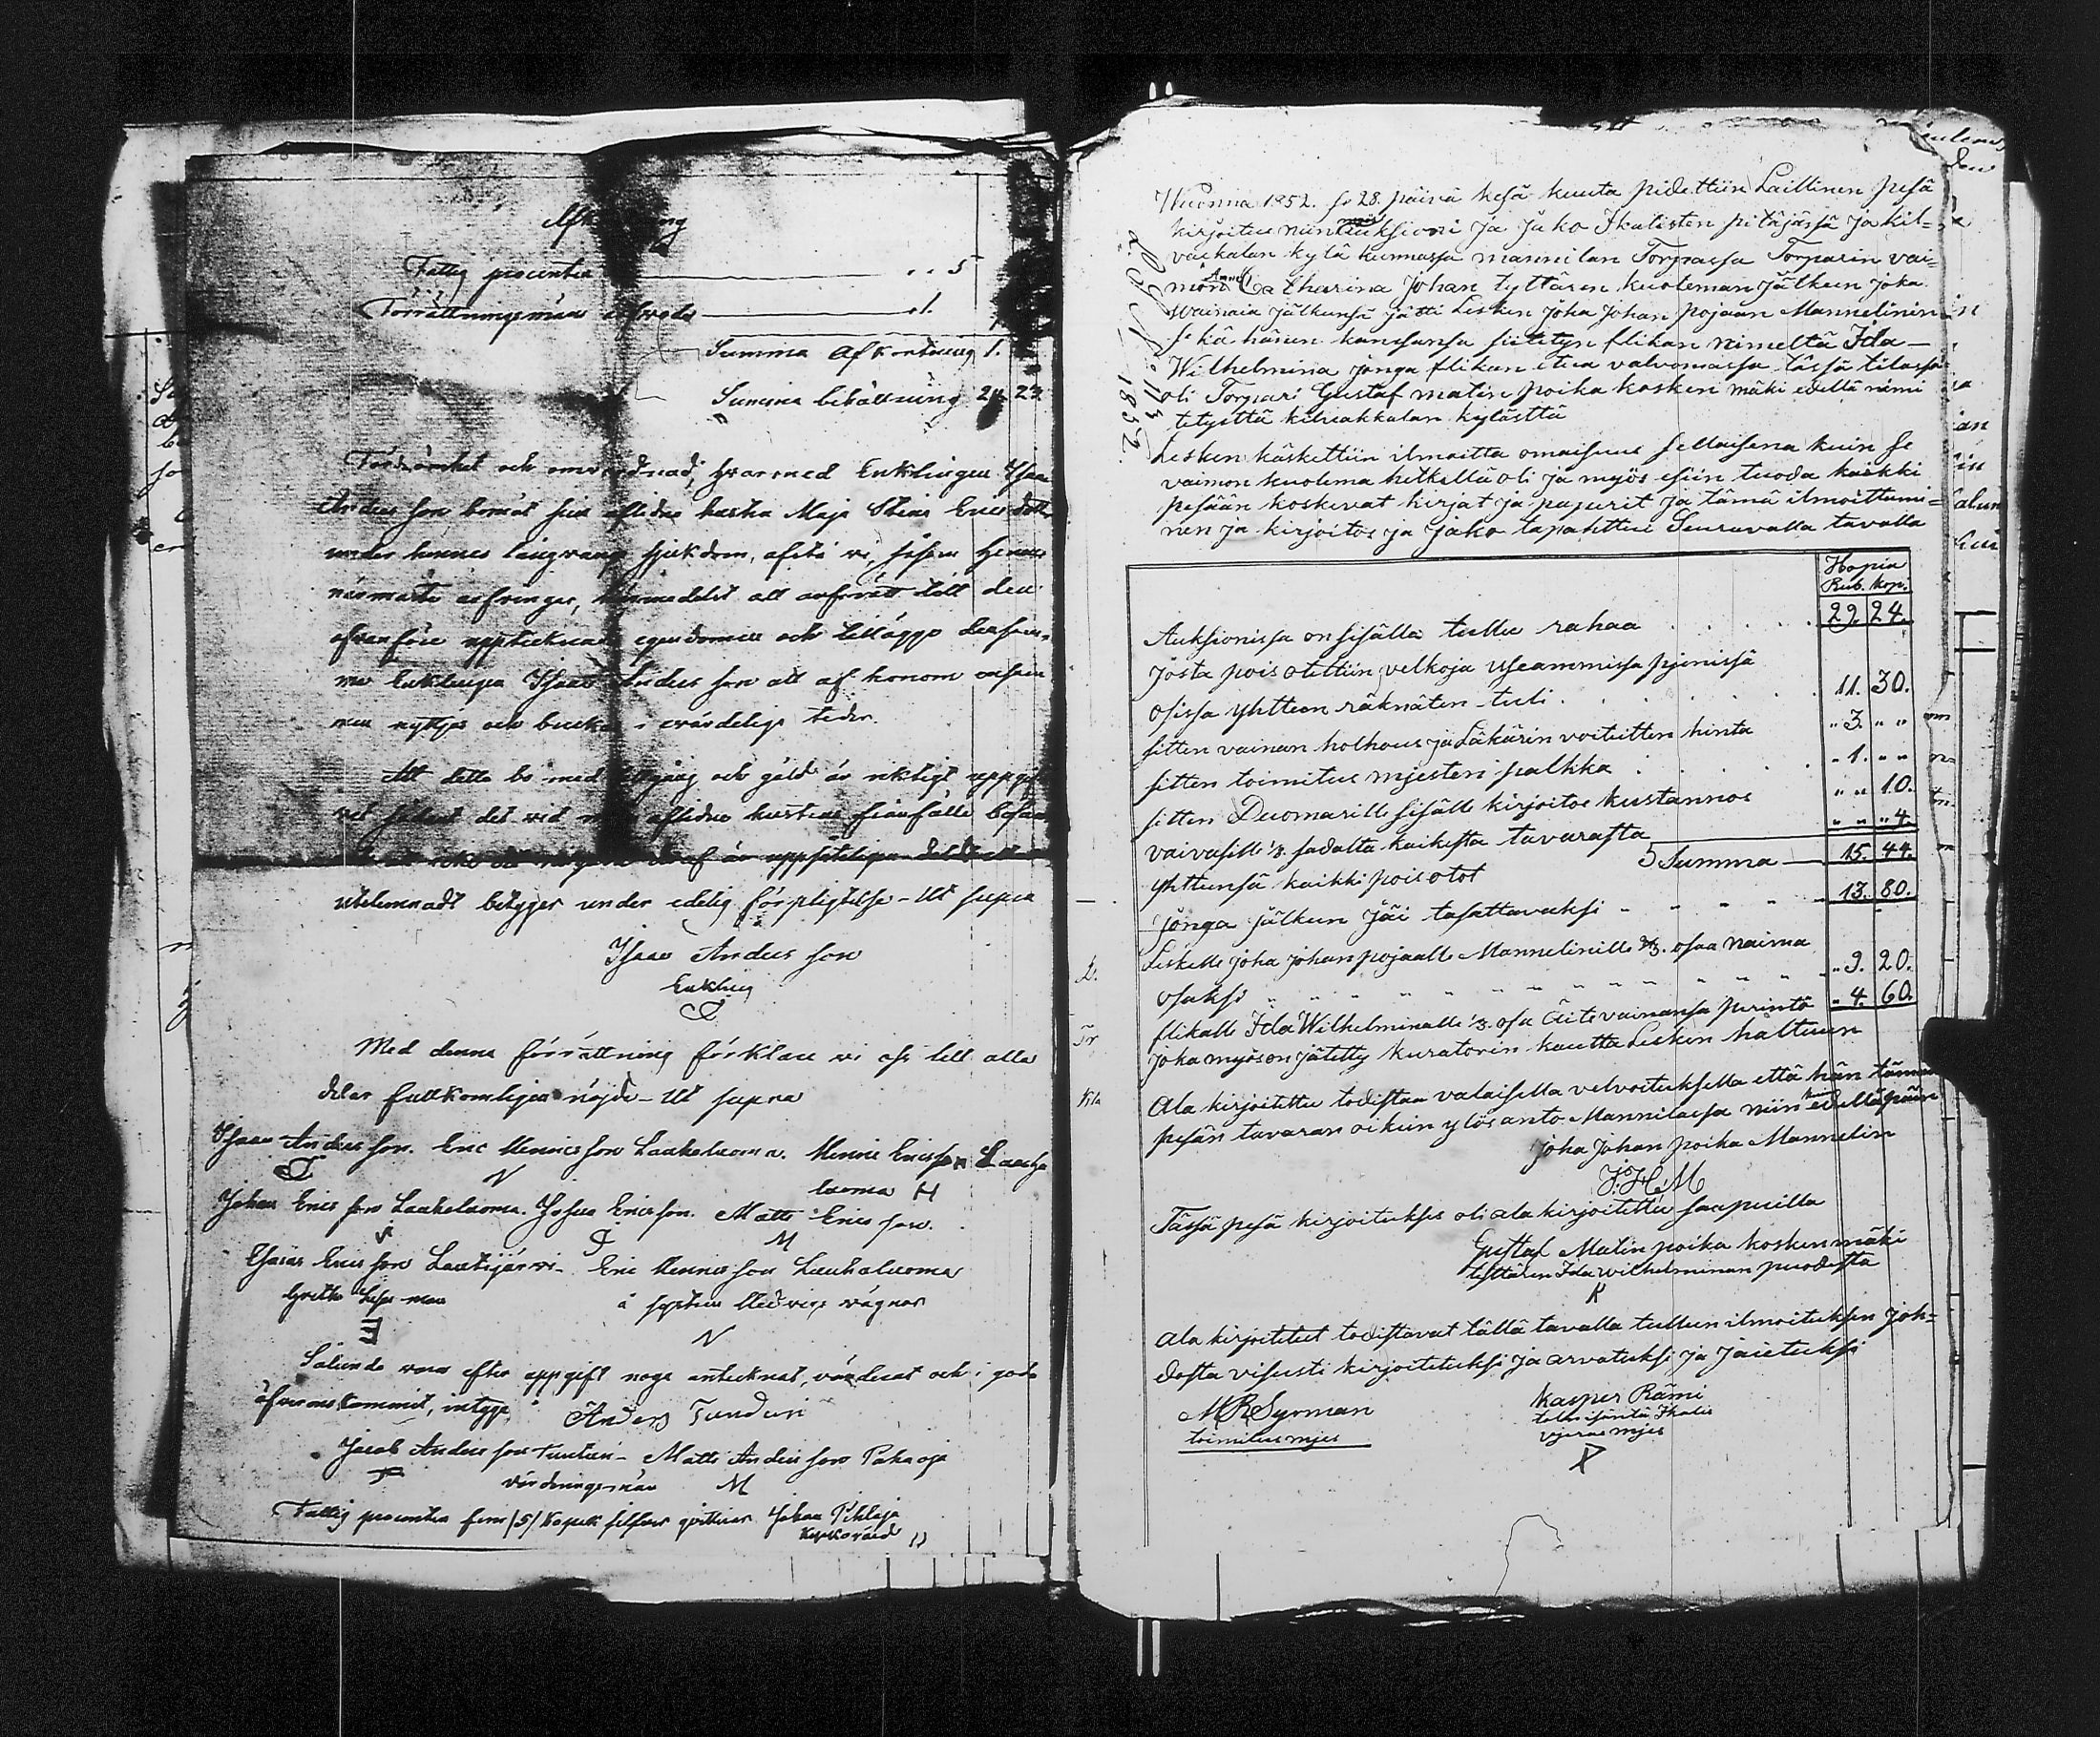 Fattig procenter " " 5
Förrättningsmäns arfvode " 1.
Summa Afkortning 1.
Summa behållning 24 23
och hvarmed Enklingen Isaac
Anders son bemöt sin aflidna hustru Maja Stina Ericsdotter
under hennes långvariga sjukdom, afstå vi, såsom hennes
närmaste arfvingar, härmedelst all arfsrätt till den
ofvanföre upptecknade egendomen och tillägga densam-
ma Enklingen Isaac Anders son att af honom ensam
nyttjas och brukas i evärdeliga tider.
Att detta bo med tillgång och gäld är riktigt uppgif
vet sådant det vid min aflidna hustrus frånfälle befans
och att icke det ringaste deraf är uppsåteligen doldt eller
utelemnadt betygar under edelig förpligtelse - Ut supra
Isaac Anders son
Enkling
Med denna förrättning förklara vi oss till alla
delar fullkomligen nöjde - Ut supra
Isaac Anders son. Eric Henrics son Lauhaluoma. Henric Ericsson Lauha
luoma H
Johan Erics son Lauhaluoma. Josua Ericsson. Matts Erics son.
M
Esaias Erics son Lautijärvi - Eric Henrics son Lauhaluoma
å systern Hedvigs vägnar
N
Sålunda vara efter uppgift noga antecknat, värderat och i godo
öfverenskommit, intyga Anders Tunturi
Jacob Anders son Tunturi - Matts Anders son Pahaoja
värderingsmän M
Fattig procenten fem /5/ kopek silfver qvitterar Johan Pihlaja
Wuonna 1852. se 28. päivä kesä kuuta pidettiin Laillinen pesä
kirjoitus niin myös Auksioni ja Jako Ikalisten pitäjässä ja kil-
vackalan kylä kunnassa mannilan Torpassa Torparin vai-
mon Anna Catharina Johan tyttären kuoleman jälkeen joka
vainaia jälkensä jätti Lesken Joha Johan pojaan Mannelinin
se kä hänen kanssansa siitetyn flikan nimeltä Ida -
Wilhelmina jonga flikan etua valvomassa tässä tilassa
oli Torpari Gustaf matin poika kosken mäki edellä nimi
tetystä kilvakkalan kylästtä
Lesken käskettiin ilmoitta omaisuus sellaisena kuin se
vaimon kuolema hetkellä oli ja myös esiin tuoda kaikki
pesään koskevat kirjat ja paperit ja tämä ilmoittami-
nen ja kirjoitos ja Jako tapahttui Seuravalla tavalla
1852.
Hopia
Rub. Kop.
Auksionissa on sisälle tullu rahaa . . . . . 29. 24.
Josta pois otettiin velkoja useammissa pjenissä
osissa yhtteen räknäten teki . . . . . 11. 30.
sitten vainan holhous ja Läkärin voiteitten hinta " 3. " "
sitten toimitus mjesten palkka . . . . " 1. " "
sitten Duomarille sisälle kirjoitos kustannos " " 10.
vaivasille 1/8. sadalta kaikesta tavarasta " " " 4.
yhttensä kaikki pois otot Summa — 15. 44.
Jonga jälkeen jäi tasattavaksi - - - - - 13. 80.
Leskelle Joha Johan pojaalle Mannelinille 2/3. osaa naima
osaksi " 9. 20.
flikalle Ida Wilhelminalle 1/3. osa äite vainansa perintö " 4. 60.
joka myös on jätetty kuratorin kautta Lesken haltuun
Ala kirjoitettu todistaa valaisella velvoituksella että hän tämän
pesän tavaran oikein ylös anto Mannilassa niin kuin edellä päin
Joha Johan poika Mannelin
J. H. M
Tässä pesä kirjoitukses oli ala kirjoitettu saapuilla
Gustaf Matin poika koskenmäki
tyttären Ida wilhelminan puolesta
K
Ala kirjoitetut todistavat tällä tavalla tulleen ilmoituksen joh-
dosta visusti kirjoitetuksi ja arvatuksi ja jaietuksi
M R Syrman
toimitus mjes
Kasper Rämi